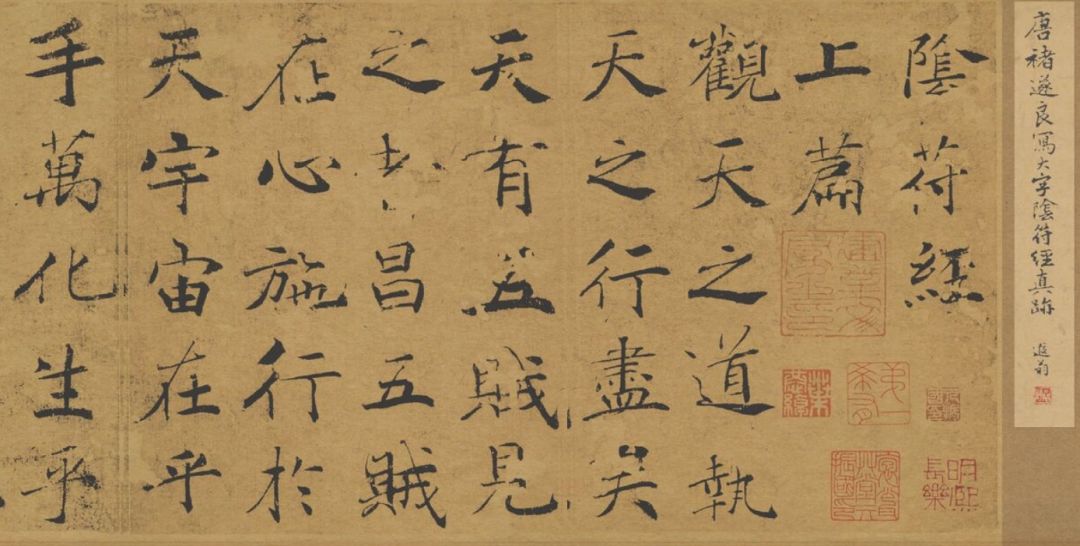 唐褚遂良寫大字陰符經真跡 遐翁
陰符經
上篇
觀天之道執
天之行盡矣
天有五賊見
之者昌五賊
在心施行於
天宇宙在乎
手萬化生乎